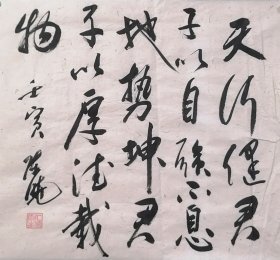 天行健君
子以自强不息
地势坤君
子以厚德载
物
壬寅